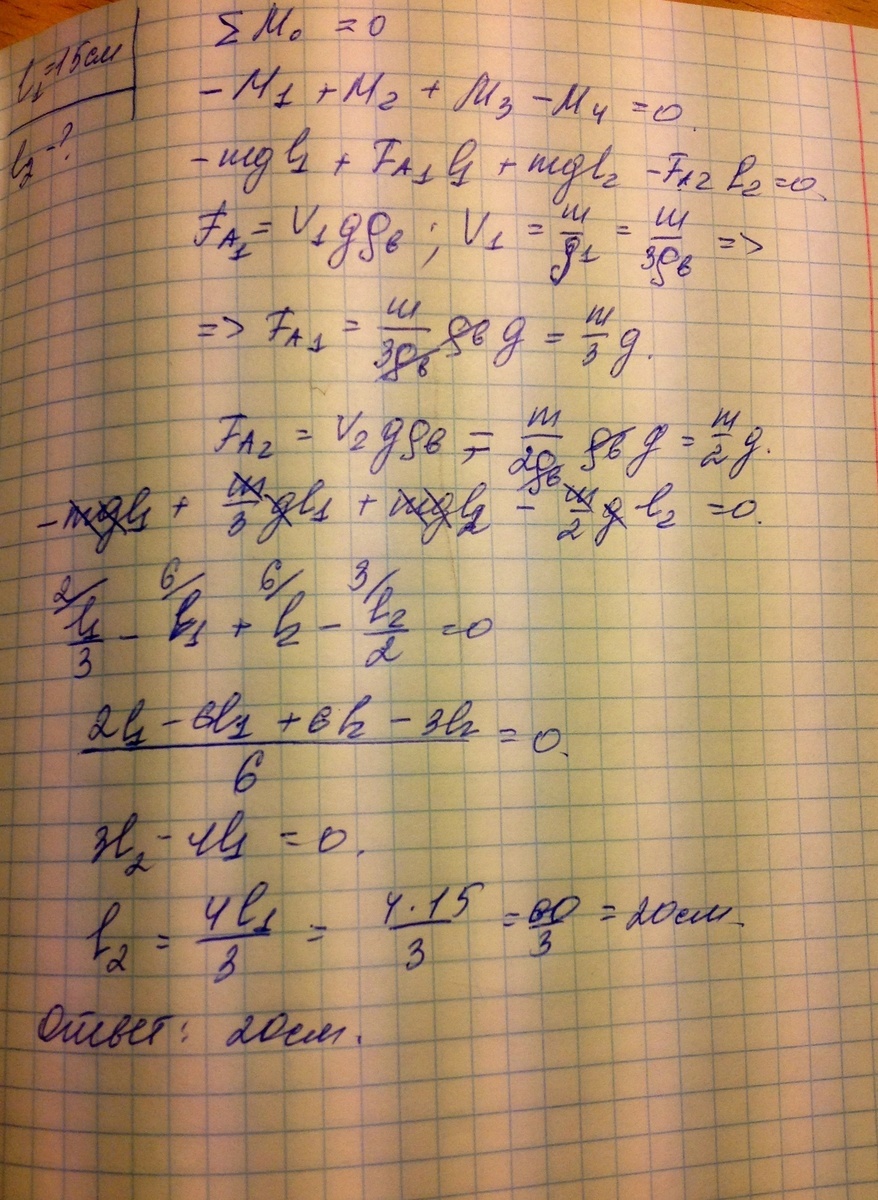 l₁=15см
l₂ - ?
ΣM₀ = 0
-M₁ + M₂ + M₃ - M₄ = 0.
-mgl₁ + F_A₁l₁ + mgl₂ - F_A₂ l₂ = 0.
F_A₁ = V₁gρв ; V₁ = m/ρ₁ = m/3ρв =>
=> F_A₁ = m/3ρв ρв g = m/3 g.
F_A₂ = V₂gρв = m/2ρв ρв g = m/2 g.
-mgl₁ + m/3 gl₁ + mgl₂ - m/2 g l₂ = 0.
2/ 6/ 6/ 3/
l₁/3 - l₁ + l₂ - l₂/2 = 0
(2l₁ - 6l₁ + 6l₂ - 3l₂)/6 = 0.
3l₂ - 4l₁ = 0.
l₂ = 4l₁/3 = 4·15/3 = 60/3 = 20см.
Ответ: 20см.